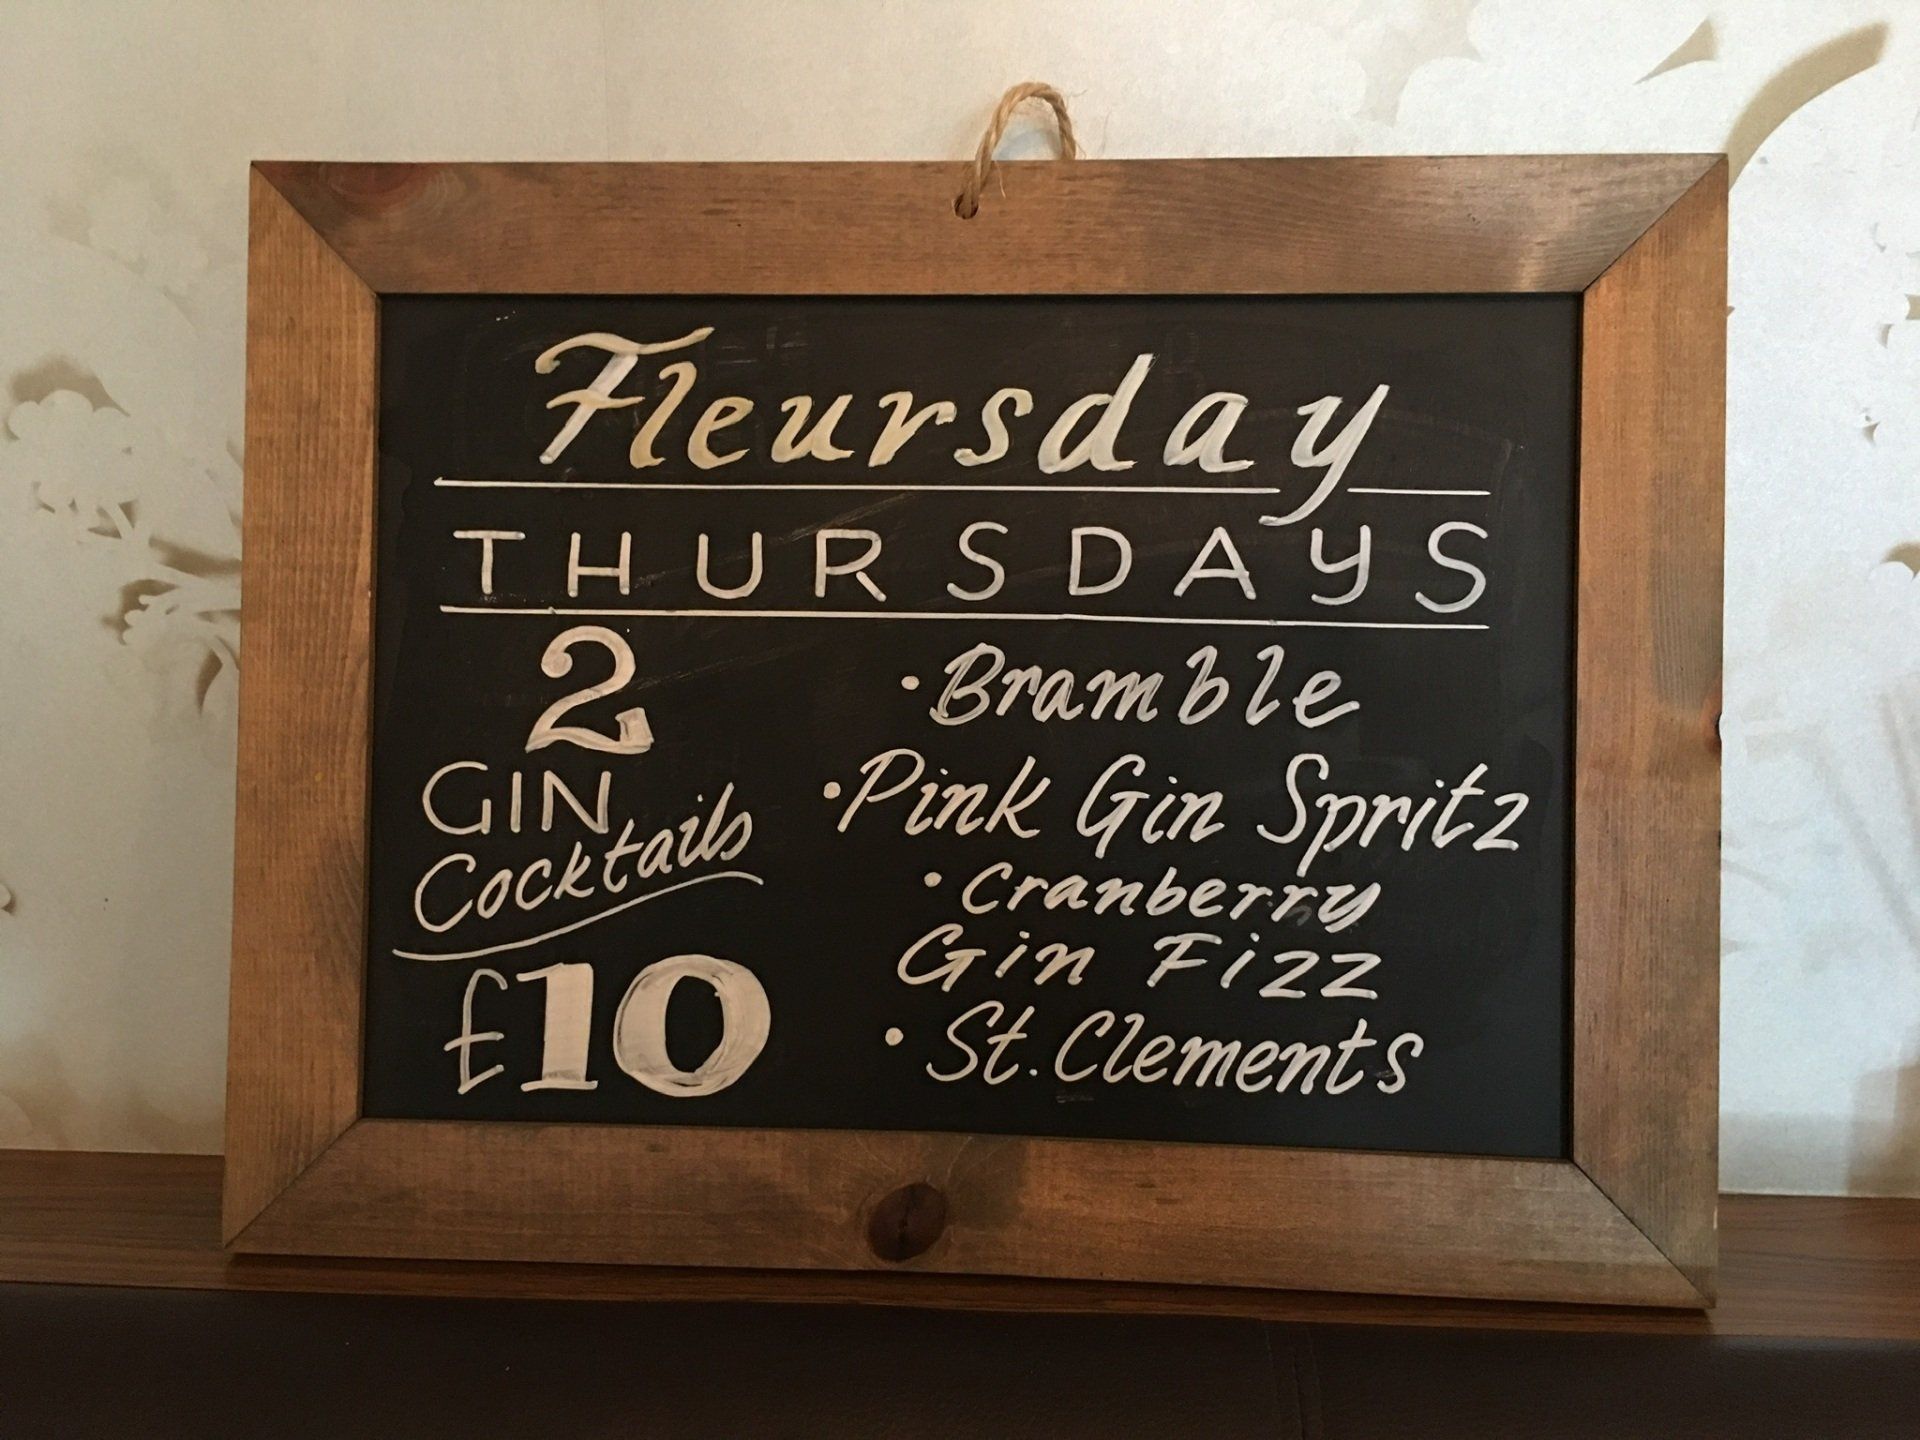 Fleursday
THURSDAYS
2
GIN
Cocktails
£10
• Bramble
• Pink Gin Spritz
• Cranberry
Gin Fizz
• St. Clements